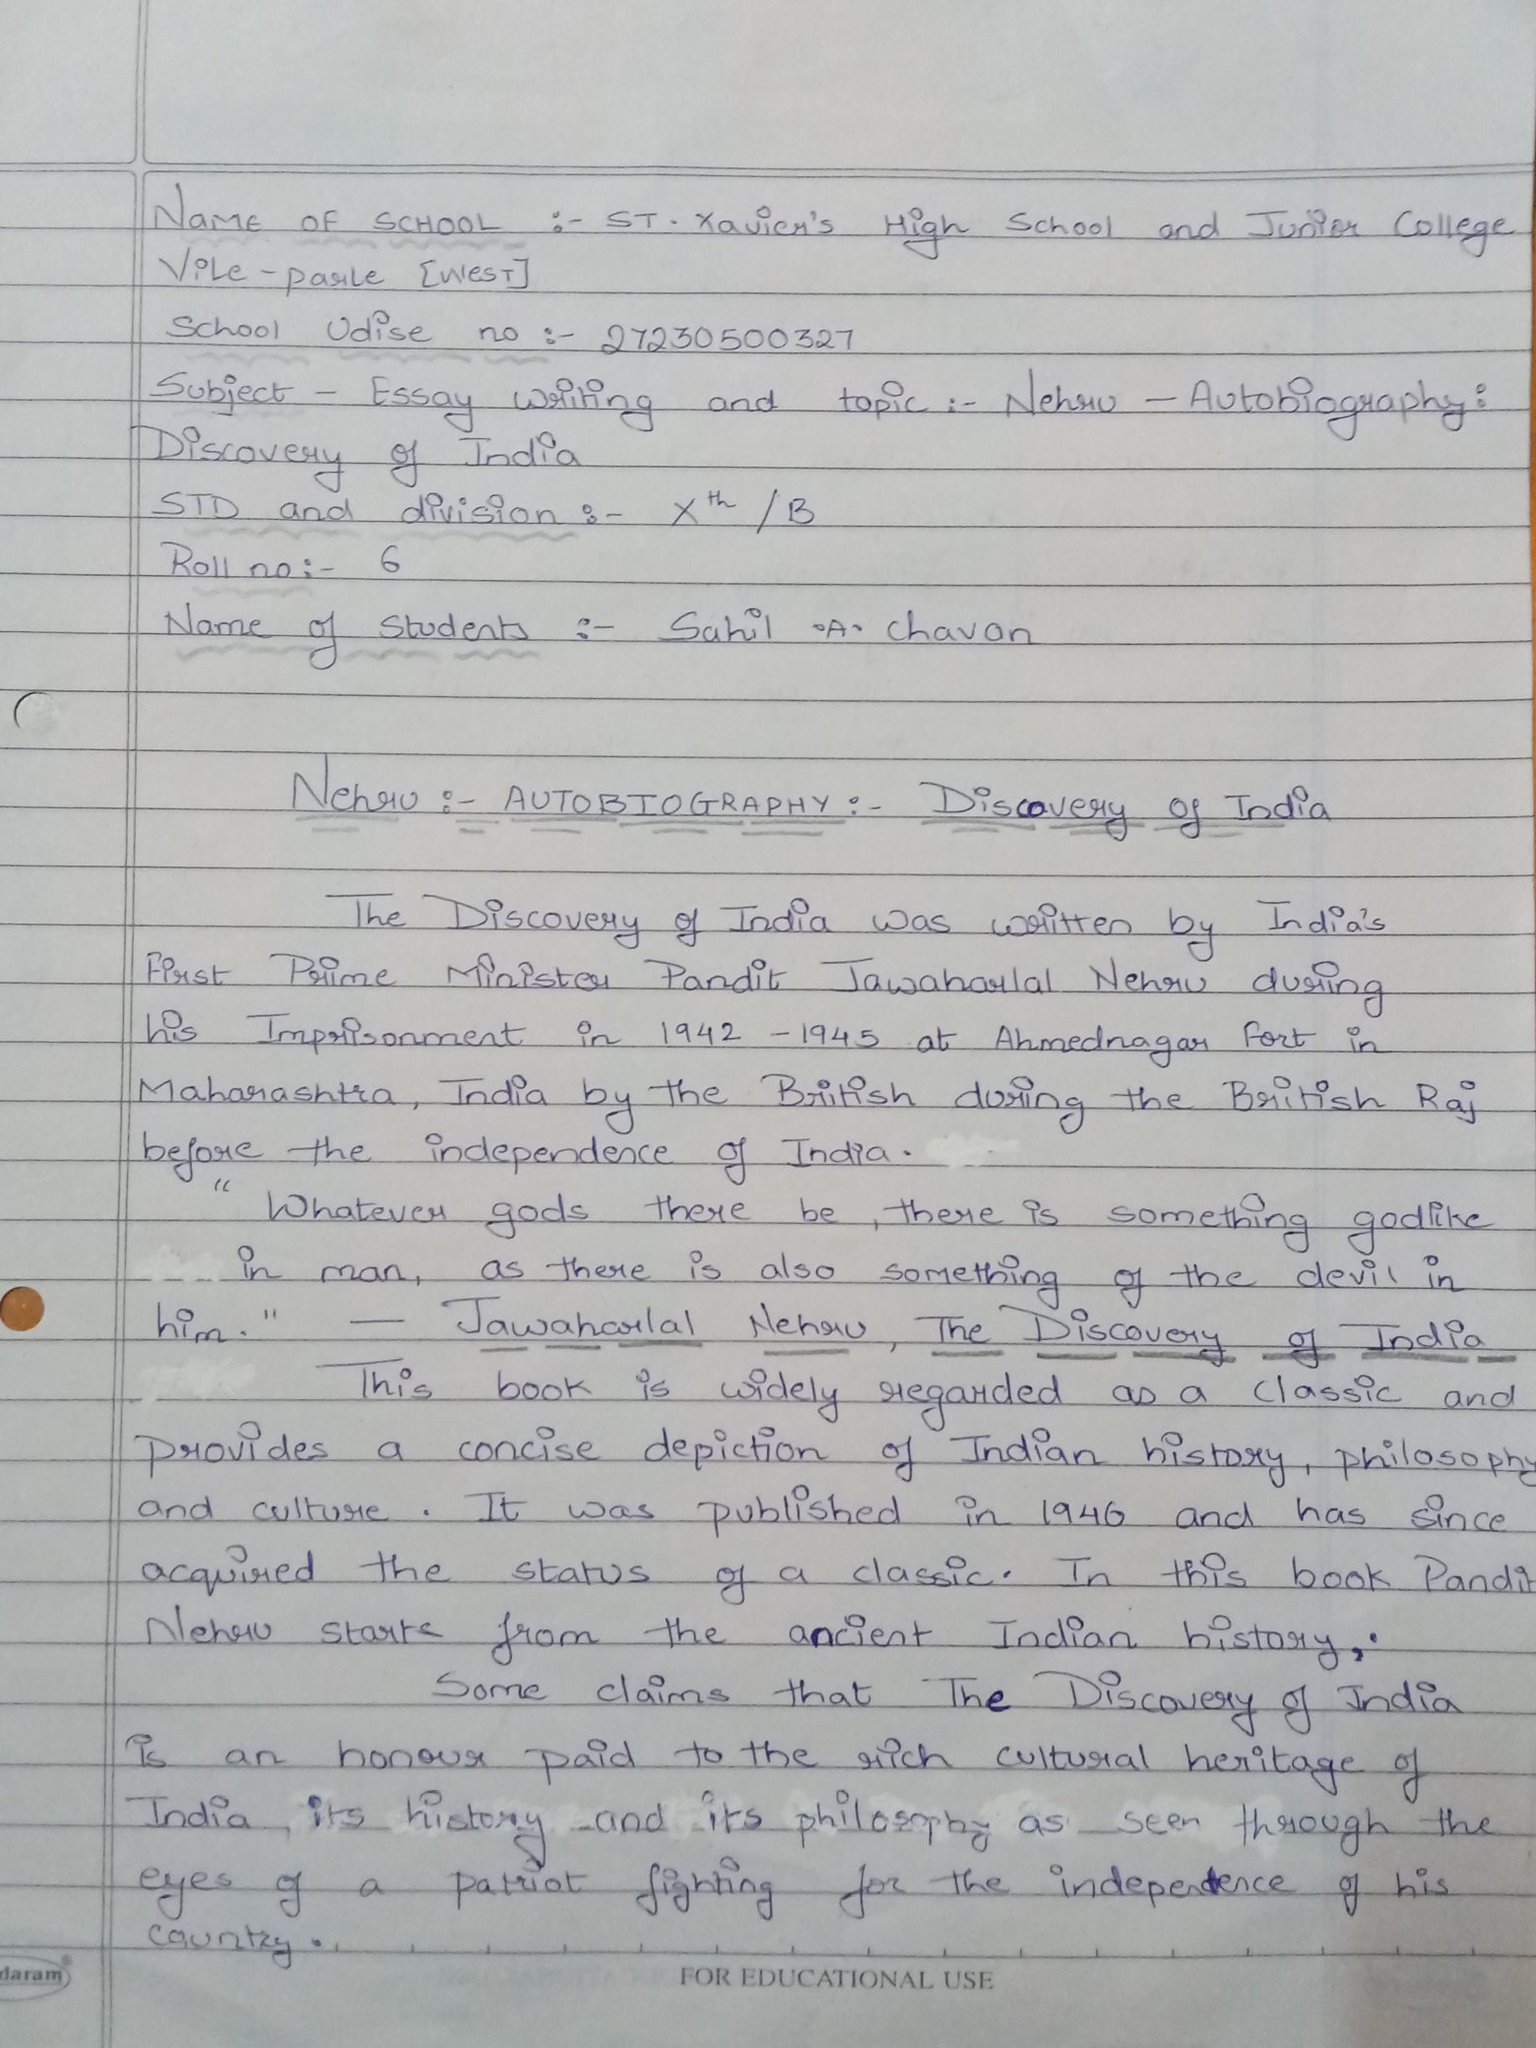 NAME OF SCHOOL :- ST. Xavier's High School and Junior College
Vile - parle [WEST]
School Udise no :- 27230500327
Subject - Essay writing and topic :- Nehru - Autobiography:
Discovery of India
STD and division :- Xth / B
Roll no :- 6
Name of students :- Sahil .A. Chavan
Nehru :- AUTOBIOGRAPHY :- Discovery of India
The Discovery of India was written by India's
First Prime Minister Pandit Jawaharlal Nehru during
his Imprisonment in 1942 - 1945 at Ahmednagar Fort in
Maharashtra, India by the British during the British Raj
before the independence of India.
" Whatever gods there be, there is something godlike
in man, as there is also something of the devil in
him. " — Jawaharlal Nehru, The Discovery of India
This book is widely regarded as a classic and
provides a concise depiction of Indian history, philosophy
and culture. It was published in 1946 and has since
acquired the status of a classic. In this book Pandit
Nehru starts from the ancient Indian history,.
Some claims that The Discovery of India
is an honour paid to the rich cultural heritage of
India, its history and its philosophy as seen through the
eyes of a patriot fighting for the independence of his
country.
daram
FOR EDUCATIONAL USE